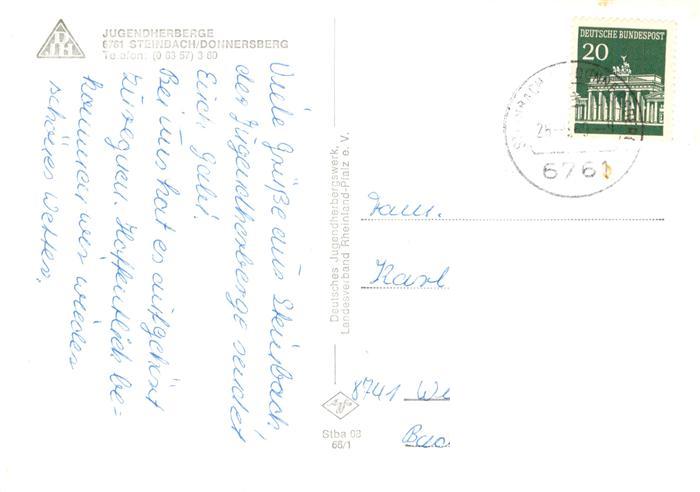 JUGENDHERBERGE
6761 STEINBACH/DONNERSBERG
Telefon: (0 63 57) 3 60
Viele Grüße aus Steinbach
der Jugendherberge sendet
Euch Gabi.
Bei uns hat es aufgehört
zu regnen. Hoffentlich be-
kommen wir wieder
schönes Wetter.
Deutsches Jugendherbergswerk,
Landesverband Rheinland-Pfalz e. V.
Stba 08
66/1
DEUTSCHE BUNDESPOST
20
STEINBACH
6761
Fam.
Karl
8741 We
Bad